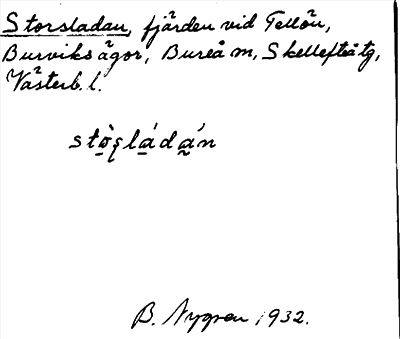 Storsladan, fjärden vid Tellön,
Burviks ägor, Bureå m, Skellefteå tg,
Västerb. l.
stò̱ʂlá̱dá̰n
B. Nygren 1932.